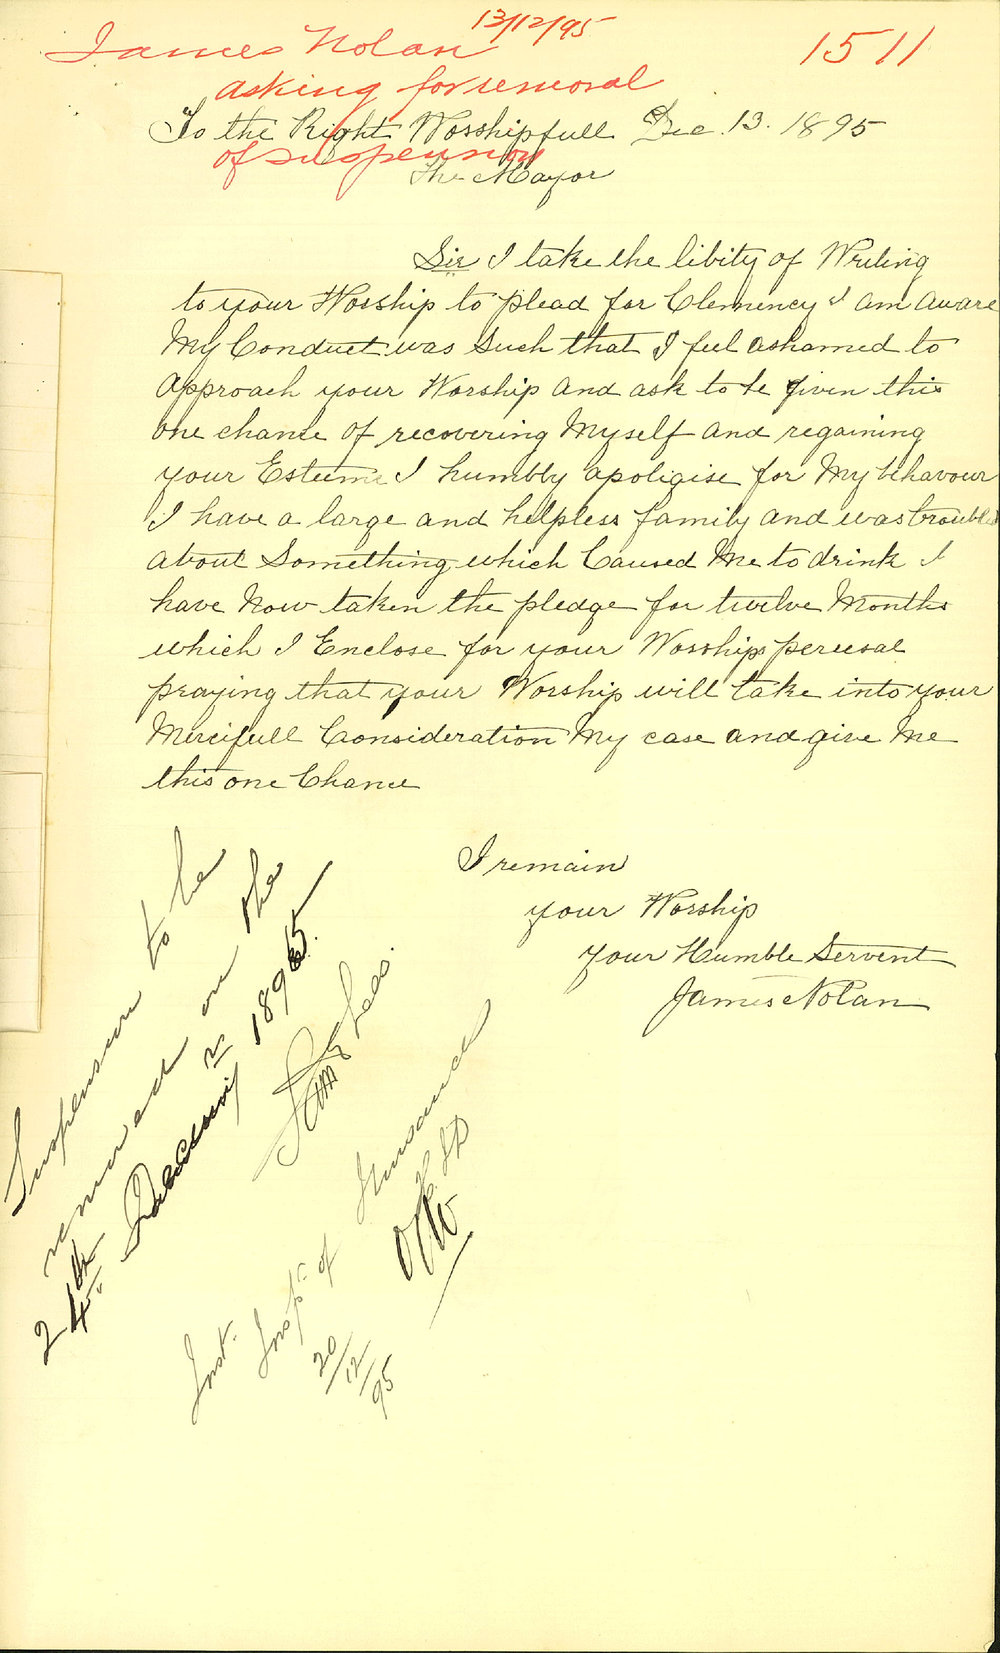 James Nolan 13/12/95
1511
asking for removal
of suspension
To the Right Worshipfull Dec. 13. 1895
The Mayor
Sir I take the libity of Writing
to your Worship to plead for Clemincy I am aware
My Conduct was Such that I feel ashamed to
approach your Worship and ask to be given this
one chance of recovering Myself and regaining
your Esteeme I humbly apoligise for My behavour
I have a large and helpless family and was troubled
about Something which Caused Me to drink I
have Now taken the pledge for twelve Months
which I Enclose for your Worships perusal
praying that your Worship will take into your
Mercifull Consideration My case and give Me
this one Chance
I remain
your Worship
your Humble Servent
James Nolan
Suspension to be
removed on the
24th 1895.
Inst. Inspr of
20/12/95